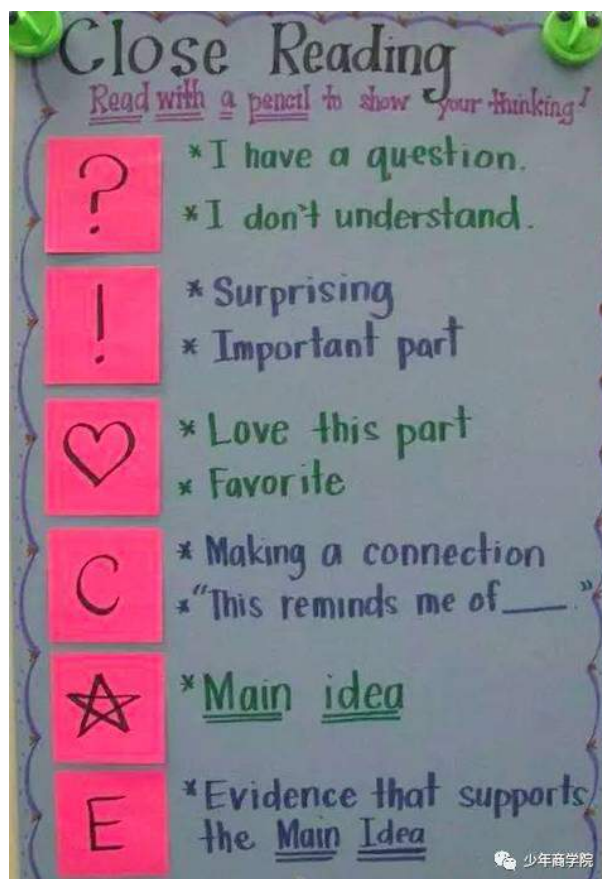 Close Reading
Read with a pencil to show your thinking!
?
* I have a question.
* I don't understand.
!
* Surprising
* Important part
* Love this part
* Favorite
C
* Making a connection
* "This reminds me of ___."
* Main idea
E
* Evidence that supports
the Main Idea
少年商学院